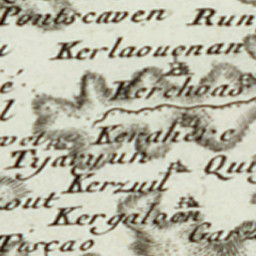 Pontscaven Run
Kerlaouenan
Kerchoas
Kerahere
Tyaryun Qui
Kerzuil
out
Kergaloen
Foscao Garz